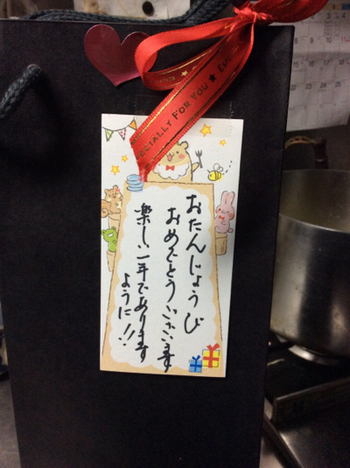 ECIALLY FOR YOU ★ E
おたんじょうび
おめでとうございます
楽しい一年であります
ように!!